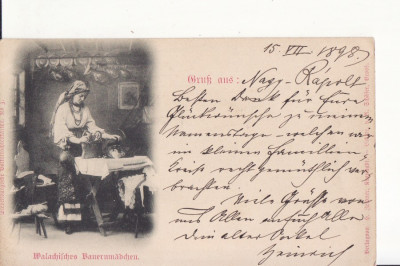 15. VII. 1898.
Gruß aus: Nagy-Rápolt
Besten Dank für Eure
Glückwünsche zu meinem
Namenstage – welchen wir
in kleinem Familien,
kreise recht gemüthlich ver,
brachten.
Viele Grüsse von
uns Allen an Euch Alle
Dein alter Onkel
Heinrich
Walachisches Bauernmädchen.